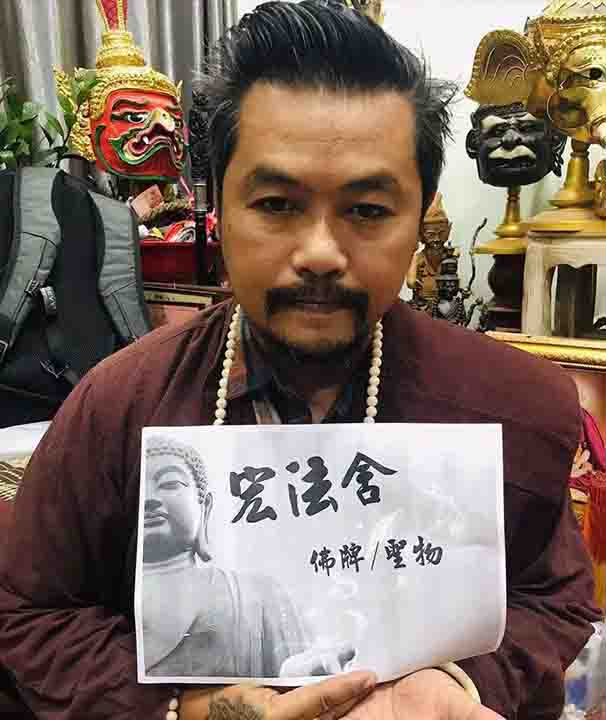 宏法舍
佛牌/聖物